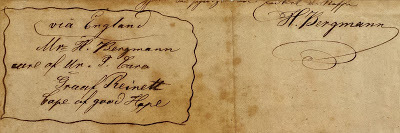 via England
Mr. H. Bergmann
care of Mr. P.
Graaf Reinett
Cape of good Hope
H. Bergmann